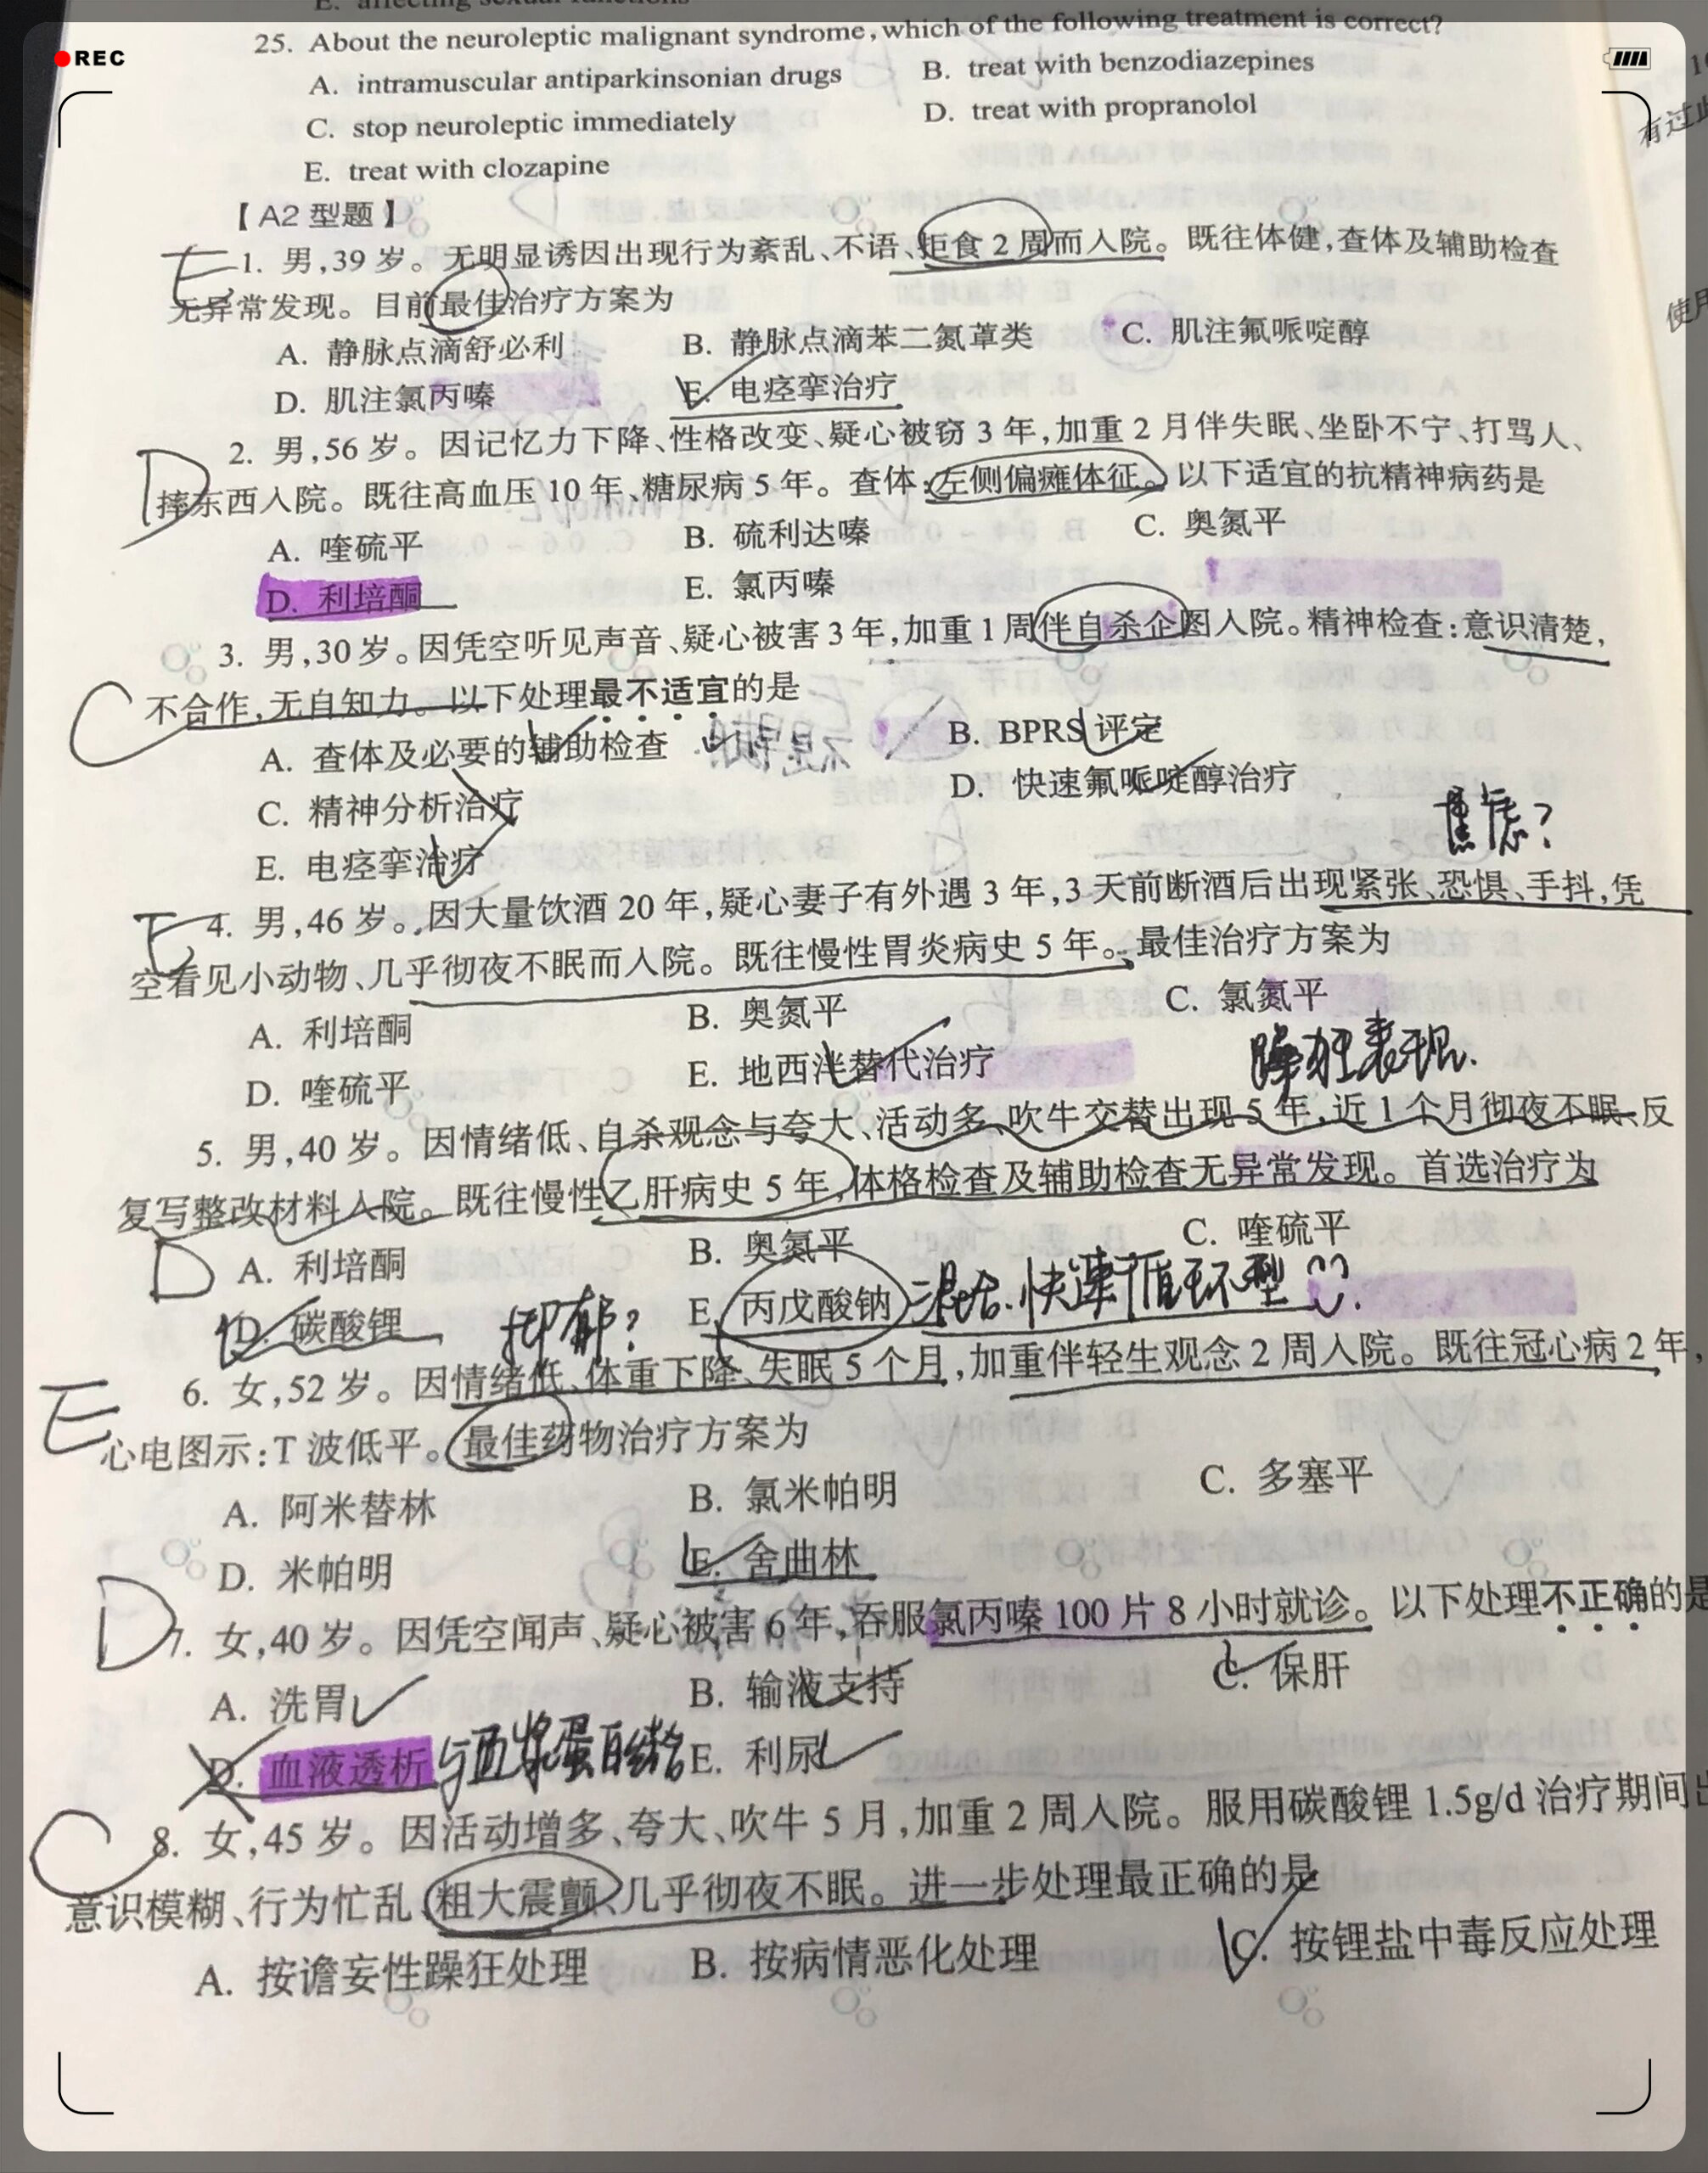 REC
25. About the neuroleptic malignant syndrome, which of the following treatment is correct?
A. intramuscular antiparkinsonian drugs B. treat with benzodiazepines
C. stop neuroleptic immediately D. treat with propranolol
E. treat with clozapine
有过
【A2 型题】
E 1. 男,39 岁。无明显诱因出现行为紊乱、不语、拒食 2 周而入院。既往体健,查体及辅助检查
无异常发现。目前最佳治疗方案为
使用
A. 静脉点滴舒必利 B. 静脉点滴苯二氮䓬类 C. 肌注氟哌啶醇
D. 肌注氯丙嗪 E. 电痉挛治疗
D 2. 男,56 岁。因记忆力下降、性格改变、疑心被窃 3 年,加重 2 月伴失眠、坐卧不宁、打骂人、
摔东西入院。既往高血压 10 年、糖尿病 5 年。查体:左侧偏瘫体征。以下适宜的抗精神病药是
A. 喹硫平 B. 硫利达嗪 C. 奥氮平
D. 利培酮 E. 氯丙嗪
3. 男,30 岁。因凭空听见声音、疑心被害 3 年,加重 1 周伴自杀企图入院。精神检查:意识清楚,
C 不合作,无自知力。以下处理最不适宜的是
A. 查体及必要的辅助检查 B. BPRS 评定
C. 精神分析治疗 D. 快速氟哌啶醇治疗
E. 电痉挛治疗
焦虑?
E 4. 男,46 岁。因大量饮酒 20 年,疑心妻子有外遇 3 年,3 天前断酒后出现紧张、恐惧、手抖,凭
空看见小动物、几乎彻夜不眠而入院。既往慢性胃炎病史 5 年。最佳治疗方案为
A. 利培酮 B. 奥氮平 C. 氯氮平
D. 喹硫平 E. 地西泮替代治疗
躁狂表现.
5. 男,40 岁。因情绪低、自杀观念与夸大、活动多、吹牛交替出现 5 年,近 1 个月彻夜不眠、反
复写整改材料入院。既往慢性乙肝病史 5 年,体格检查及辅助检查无异常发现。首选治疗为
D A. 利培酮 B. 奥氮平 C. 喹硫平
D. 碳酸锂 E. 丙戊酸钠 混合.快速循环型
抑郁?
E 6. 女,52 岁。因情绪低、体重下降、失眠 5 个月,加重伴轻生观念 2 周入院。既往冠心病 2 年,
心电图示:T 波低平。最佳药物治疗方案为
A. 阿米替林 B. 氯米帕明 C. 多塞平
D. 米帕明 E. 舍曲林
D 7. 女,40 岁。因凭空闻声、疑心被害 6 年,吞服氯丙嗪 100 片 8 小时就诊。以下处理不正确的是
A. 洗胃 B. 输液支持 C. 保肝
D. 血液透析 与血浆蛋白结合 E. 利尿
C 8. 女,45 岁。因活动增多、夸大、吹牛 5 月,加重 2 周入院。服用碳酸锂 1.5g/d 治疗期间出
意识模糊、行为忙乱、粗大震颤、几乎彻夜不眠。进一步处理最正确的是
A. 按谵妄性躁狂处理 B. 按病情恶化处理 C. 按锂盐中毒反应处理